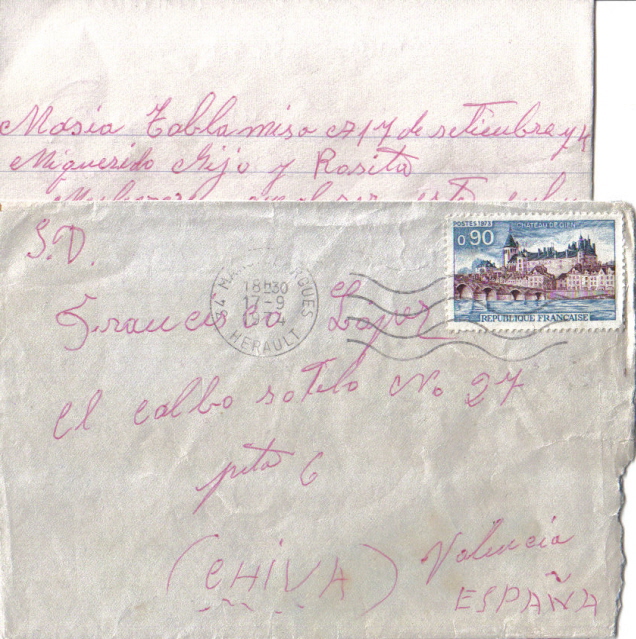 Masia Tabla miso a 17 de setiembre y
Mi querido Hijo y Rosita
S.D.
POSTES 1973
CHATEAU DE GIEN
0,90
REPUBLIQUE FRANCAISE
18H30
17-9
1974
HERAULT
Francisco Lopez
el calbo sotelo No 27
pta 6
(CHIVA) Valencia
ESPAÑA